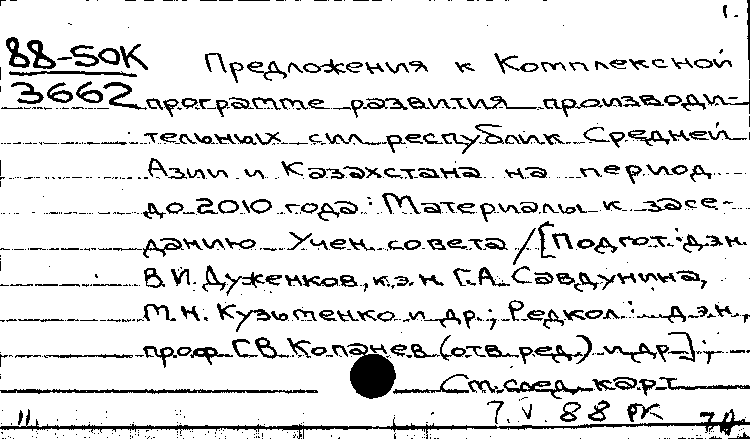 1.
88-50К
3662
Предложения к Комплексной
программе развития производи-
тельных сил республик Средней
Азии и Казахстана на период
до 2010 года: Материалы к засе-
данию Учен. совета / [Подгот.: д.э.н.
В.И. Дуженков, к.э.н. Г.А. Савдунина,
М.Н. Кузьменко и др.; Редкол.: д.э.н.,
проф. Г.В. Копанев (отв. ред.) и др.];
См. след. карт.
7.V.88 РК